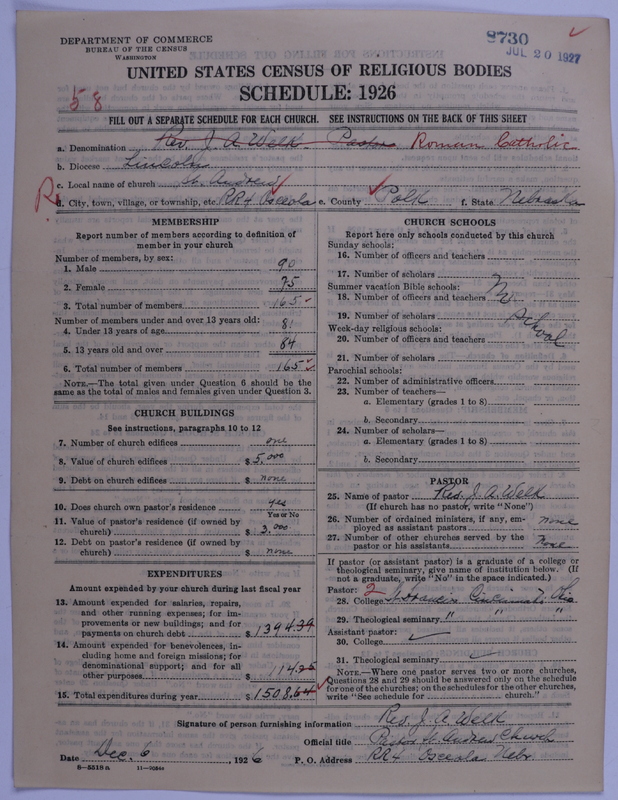 DEPARTMENT OF COMMERCE
BUREAU OF THE CENSUS
WASHINGTON
8730
JUL 20 1927
UNITED STATES CENSUS OF RELIGIOUS BODIES
SCHEDULE: 1926
58
FILL OUT A SEPARATE SCHEDULE FOR EACH CHURCH. SEE INSTRUCTIONS ON THE BACK OF THIS SHEET
a. Denomination Rev. J. A. Welk Pastor Roman Catholic
b. Diocese Lincoln
c. Local name of church St. Andrew
R
d. City, town, village, or township, etc. RR4 Osceola e. County Polk f. State Nebraska
MEMBERSHIP
Report number of members according to definition of
member in your church
Number of members, by sex:
1. Male 90
2. Female 75
3. Total number of members 165
Number of members under and over 13 years old:
4. Under 13 years of age 81
5. 13 years old and over 84
6. Total number of members 165
NOTE.—The total given under Question 6 should be the
same as the total of males and females given under Question 3.
CHURCH BUILDINGS
See instructions, paragraphs 10 to 12
7. Number of church edifices one
8. Value of church edifices $5,000
9. Debt on church edifices $ none
10. Does church own pastor's residence? yes
Yes or No
11. Value of pastor's residence (if owned by
church) $ 3,000
12. Debt on pastor's residence (if owned by
church) $ none
EXPENDITURES
Amount expended by your church during last fiscal year
13. Amount expended for salaries, repairs,
and other running expenses; for im-
provements or new buildings; and for
payments on church debt $ 1394.39
14. Amount expended for benevolences, in-
cluding home and foreign missions; for
denominational support; and for all
other purposes $ 114.25
15. Total expenditures during year $ 1508.64
CHURCH SCHOOLS
Report here only schools conducted by this church
Sunday schools:
16. Number of officers and teachers
17. Number of scholars
Summer vacation Bible schools:
18. Number of officers and teachers No
19. Number of scholars School
Week-day religious schools:
20. Number of officers and teachers
21. Number of scholars
Parochial schools:
22. Number of administrative officers
23. Number of teachers—
a. Elementary (grades 1 to 8)
b. Secondary
24. Number of scholars—
a. Elementary (grades 1 to 8)
b. Secondary
PASTOR
25. Name of pastor Rev. J. A. Welk
(If church has no pastor, write "None")
26. Number of ordained ministers, if any, em-
ployed as assistant pastors none
27. Number of other churches served by the
pastor or his assistants None
If pastor (or assistant pastor) is a graduate of a college or
theological seminary, give name of institution below. (If
not a graduate, write "No" in the space indicated.)
Pastor: 2
28. College St. Francis Cincinnati Ohio
29. Theological seminary " " "
Assistant pastor:
30. College
31. Theological seminary
NOTE.—Where one pastor serves two or more churches,
Questions 28 and 29 should be answered only on the schedule
for one of the churches; on the schedules for the other churches,
write "See schedule for church."
Signature of person furnishing information Rev. J. A. Welk
Official title Pastor St. Andrew Church
Date Dec. 6, 1926 P. O. Address RR4 Osceola Nebr.
8—5518 a 11—9064a